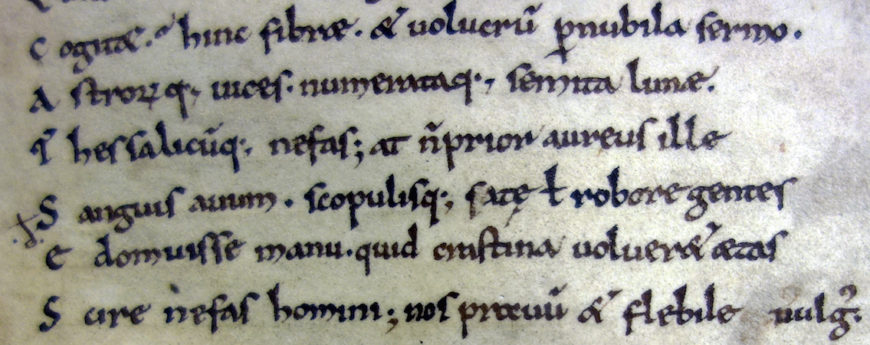 C ogit&. hinc fibræ. & uolucrũ ꝑnubila sermo.
A stroꝝq;, uices. numerataq;, semita lunæ.
T hessalicũq;. nefas; at ñ prior aureus ille
S anguis auum. scopulisq; satę ł robore gentes
E domuisse manu. quid crastina uoluer& ætas
S cire nefas homini; nos prauũ & flebile uulgꝰ.